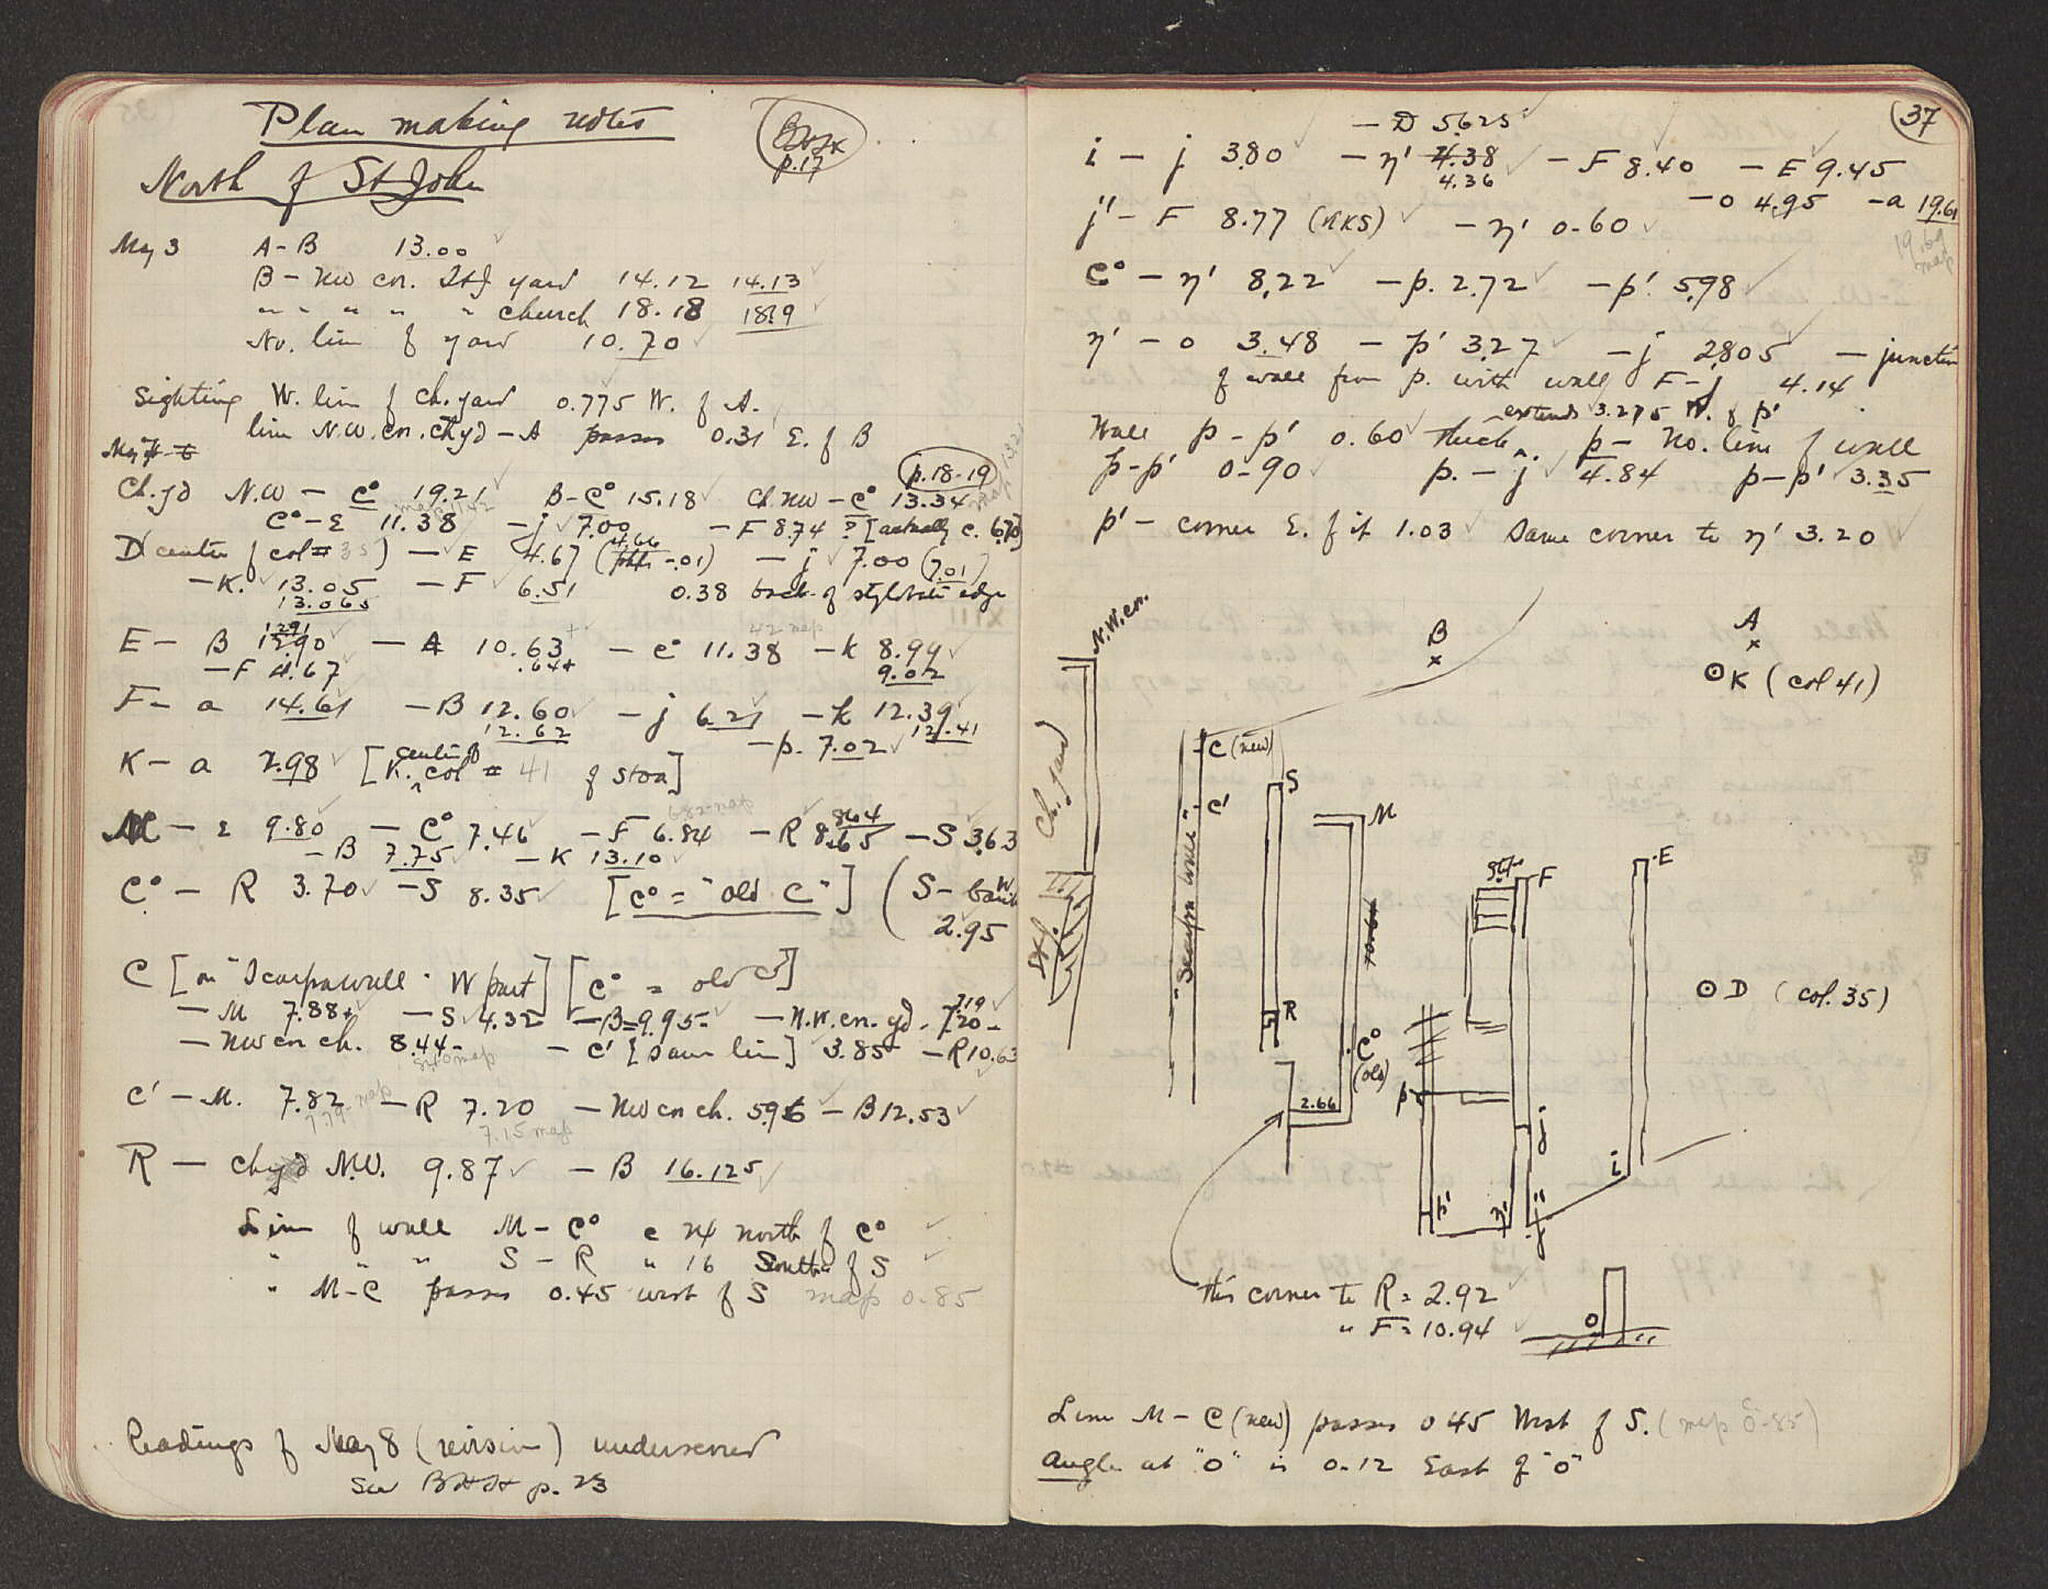 Plan making notes
p.17
North of St John
May 3 A - B 13.00
B - NW cn. StJ yard 14.12 14.13
" " " " " church 18.18 18.19
No. line of yard 10.70
Sighting W. line of Ch. yard 0.775 W. of A.
line N.W. cn. Chyd - A passes 0.31 E. of B
p. 18-19
Ch. yd N.W - C° 19.21 B - C° 15.18 Ch. NW - C° 13.34
C° - E 11.38 - j 7.00 - F 8.74 ? [actually c. 6.70]
D (center of col # 35) - E 4.67 - j 7.00 (7.01)
- K. 13.05 - F 6.51 0.38 back of stylobate edge
13.065
E - B 12.90 - A 10.63 - C° 11.38 - K 8.99
12.91
- F 4.67 .64+ 9.02
F - a 14.61 - B 12.60 - j 6.21 - K 12.39
12.62 - p. 7.02 12.41
K - a 2.98 [K. center of col # 41 of stoa]
M - E 9.80 - C° 7.46 - F 6.84 - R 8.65 - S 3.63
6.82 map 8.64
- B 7.75 - K 13.10
C° - R 3.70 - S 8.35 [C° = "old C"] (S -
2.95
C [on "Scarpa wall" W part] [C° = old C]
- M 7.88+ - S 4.32 - B = 9.95- - N.W. cn. yd. 7.20-
7.19
- NW cn ch. 8.44- - C' [Same line] 3.85 - R 10.63
C' - M. 7.82 - R 7.20 - NW cn ch. 5.96 - B 12.53
7.79 map 7.15 map
R - Chyd N.W. 9.87 - B 16.125
Line of wall M - C° c 24 north of C°
" " " S - R " 16 South of S
" M - C passes 0.45 west of S map 0.85
Readings of May 8 (revision) underscored
See p. 23
37
- D 5.625
i - j 3.80 - η' 4.38 - F 8.40 - E 9.45
4.36
- o 4.95 - a 19.61
j'' - F 8.77 - η' 0.60
19.69 map
C° - η' 8.22 - p. 2.72 - p' 5.98
η' - o 3.48 - p' 3.27 - j 2.805 - junction
of wall from p. with wall F - j 4.14
extends 3.275 W. of p'
Wall p - p' 0.60 thick. p - No. line of wall
p - p' 0.90 p. - j 4.84 p - p' 3.35
p' - corner E. of it 1.03 Same corner to η' 3.20
N.W. cn.
B
A
K (col 41)
Ch. yard
C (new)
S
C'
M
"Scarpa wall"
F
E
St J.
R
D (col. 35)
C°
(old)
2.66
p
j
i
p'
η'
j''
this corner to R = 2.92
" F = 10.94
O
Line M - C (new) passes 0.45 West of S. (map 0.85)
Angle at "O" is 0.12 East of "O"